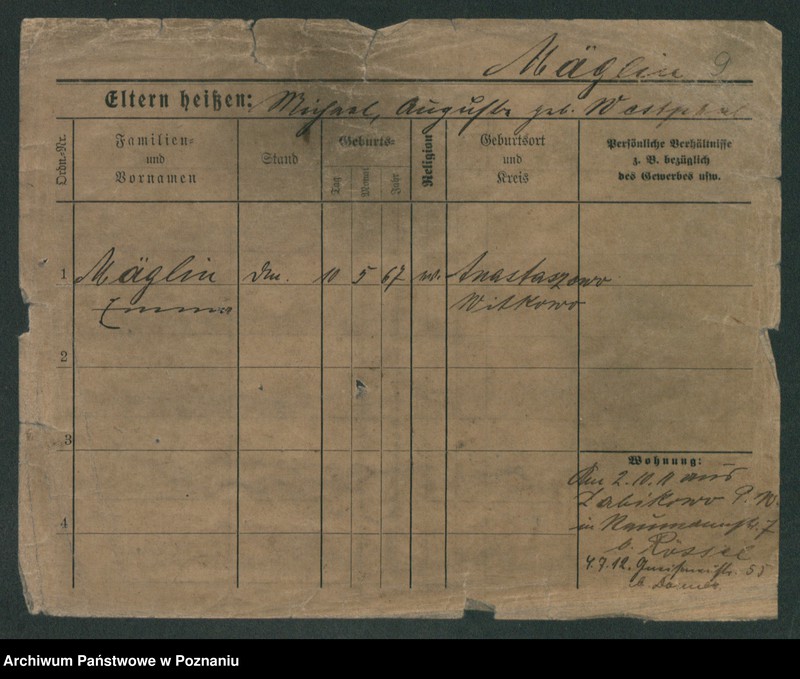 Mäglin 9
Eltern heißen: Michael, Auguste geb. Westphal
Ordn.-Nr.
Familien- und Vornamen
Stand
Geburts-
Tag
Monat
Jahr
Religion
Geburtsort und Kreis
Persönliche Verhältnisse
z. B. bezüglich
des Gewerbes usw.
1 Mäglin 10 5 67 Anastazewo
Emma Witkowo
2
3
Wohnung:
Am 2.10.11 aus
Zabikowo P. W.
in Naumannstr. 7
b. Rössel
4
4.7.12. Gneisenaustr. 55
b.
Archiwum Państwowe w Poznaniu